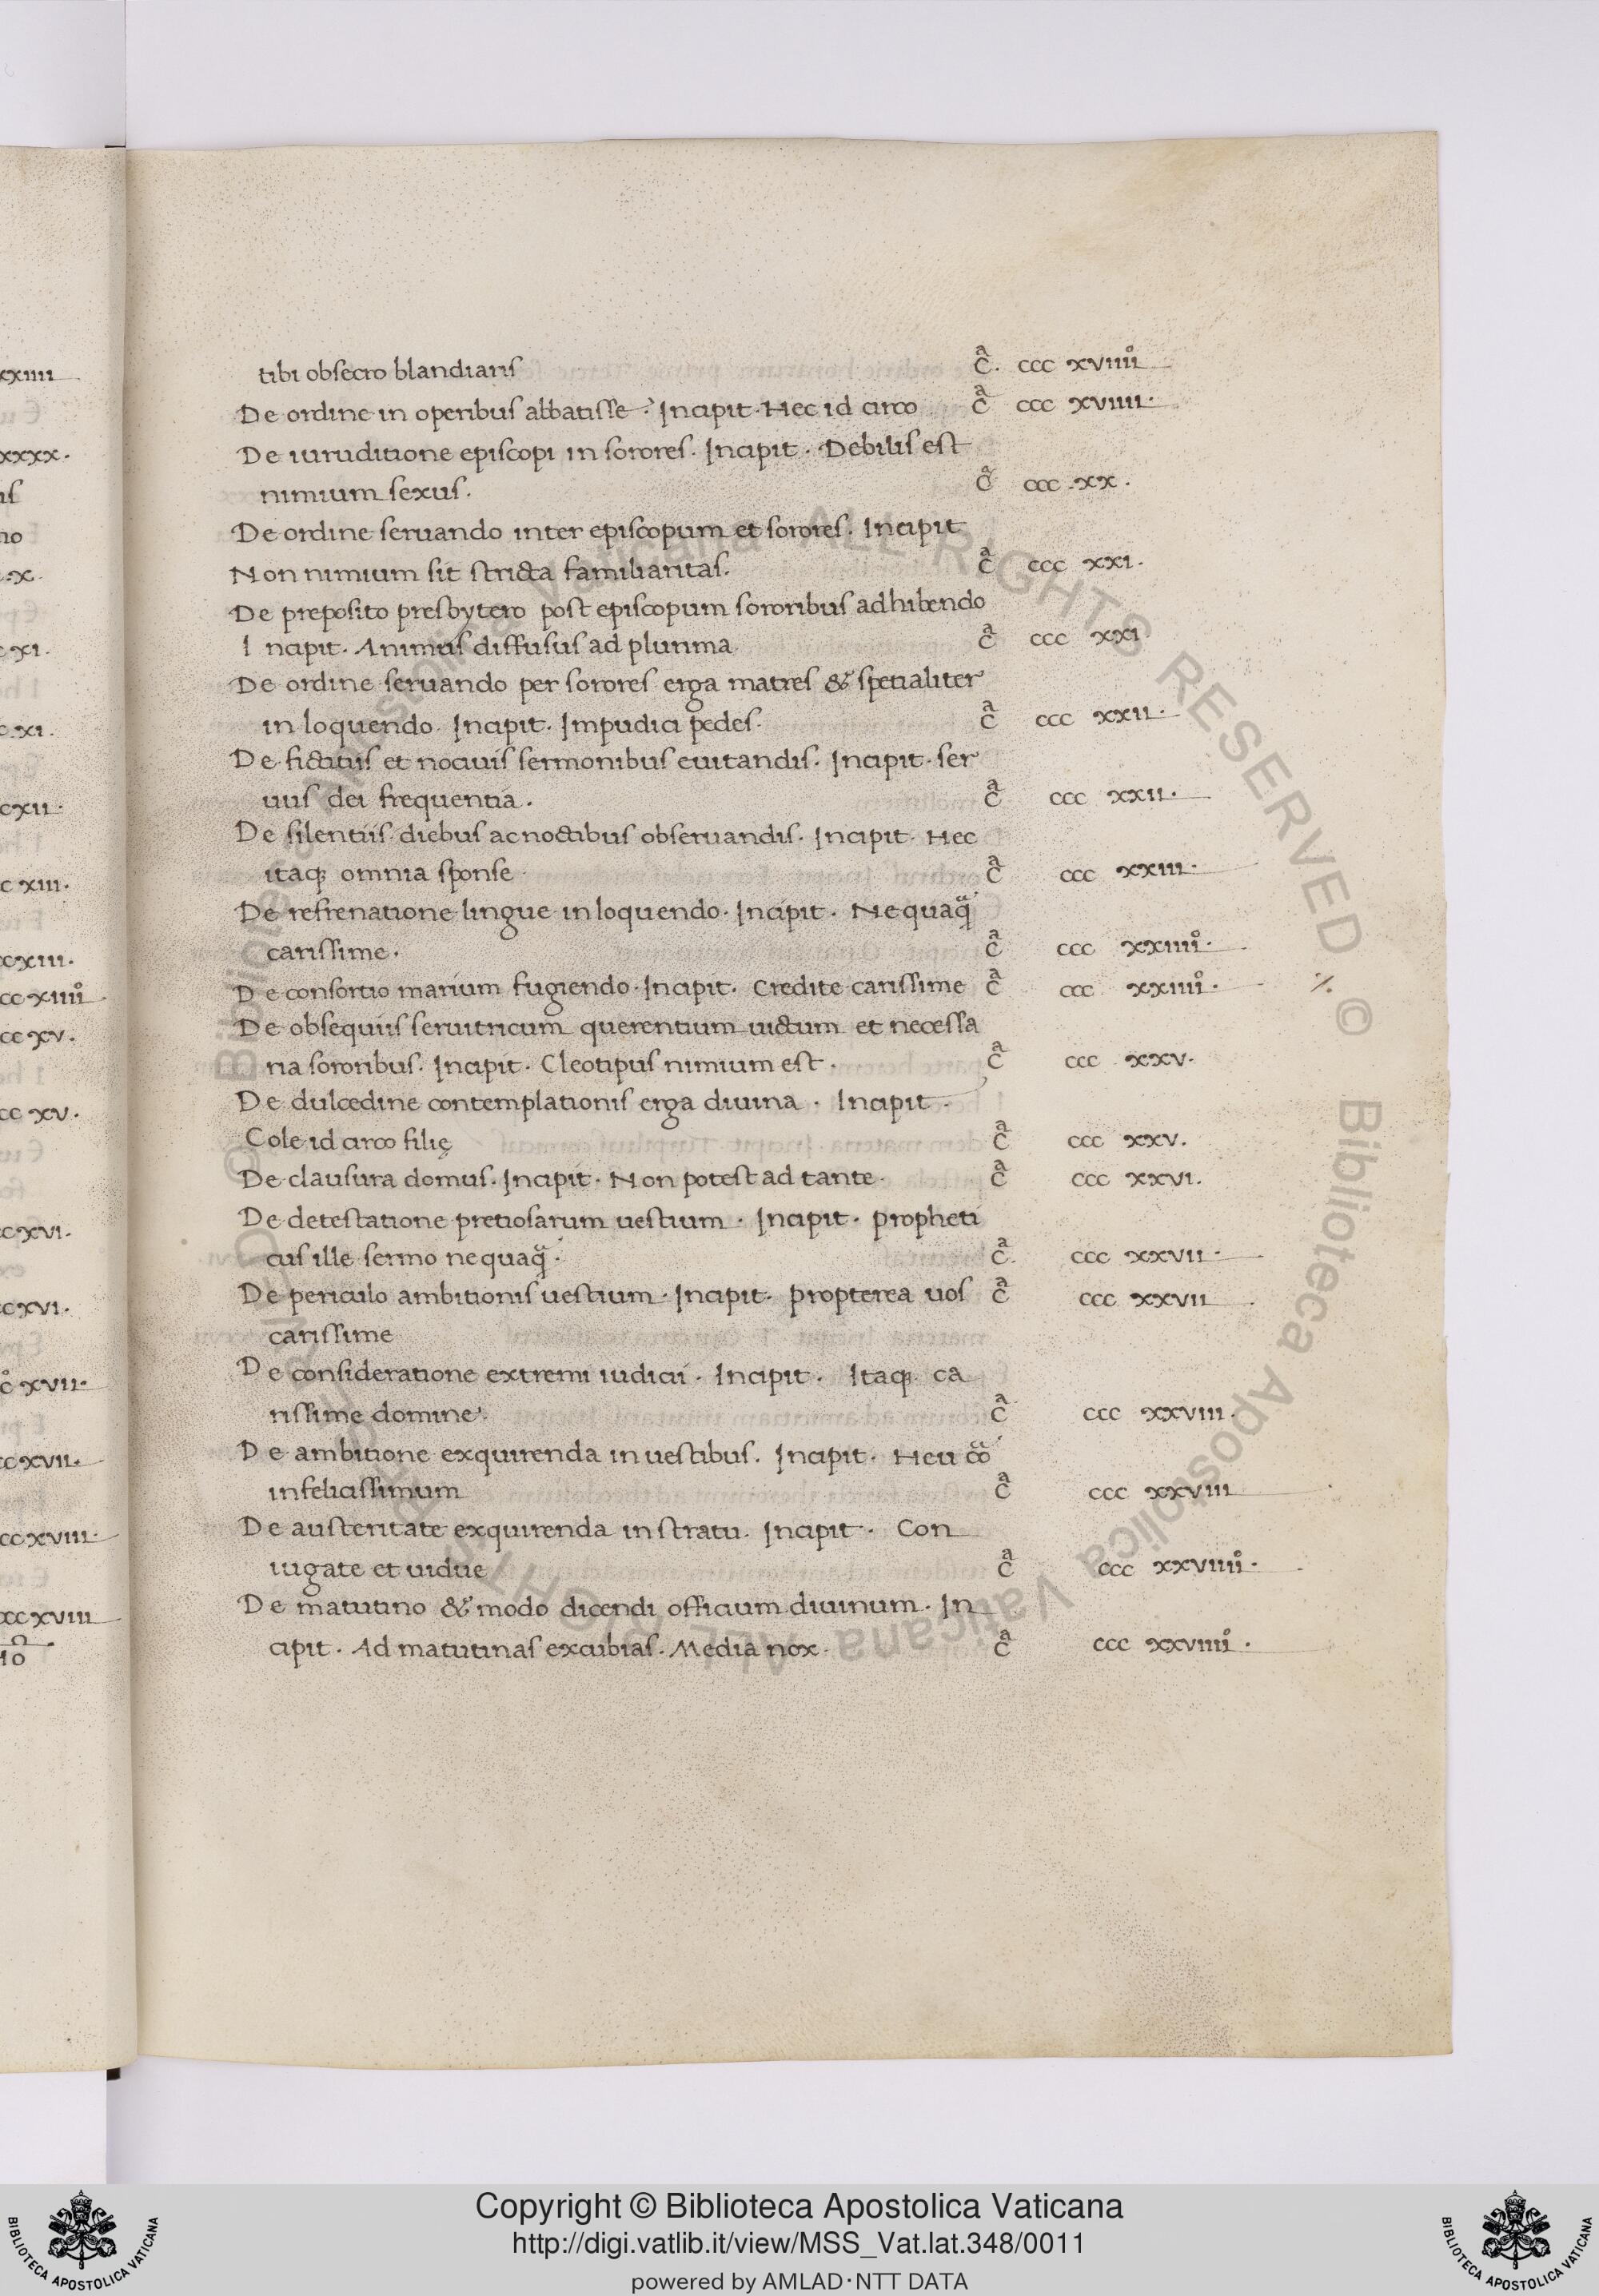 tibi obsecro blandiaris cᵃ. ccc xviiiiº
De ordine in operibus abbatisse. Incipit. Hec id circo cᵃ ccc xviiii.
De iuruditione episcopi in sorores. Incipit. Debilis est
nimium sexus. cᵃ ccc.xx.
De ordine seruando inter episcopum et sorores. Incipit
Non nimium sit stricta familiaritas. cᵃ ccc xxi.
De preposito presbytero post episcopum sororibus adhibendo
Incipit. Animus diffusus ad plurima cᵃ ccc xxi
De ordine seruando per sorores erga matres & spetialiter
in loquendo. Incipit. Impudici pedes. cᵃ ccc xxii.
De fictitiis et nociuis sermonibus euitandis. Incipit. ser
uus dei frequentia. cᵃ ccc xxii.
De silentiis diebus ac noctibus obseruandis. Incipit. Hec
itaq; omnia sponse cᵃ ccc xxiii.
De refrenatione lingue in loquendo. Incipit. Ne quaq̃
carissime. cᵃ ccc xxiiiiº.
De consortio marium fugiendo. Incipit. Credite carissime cᵃ ccc xxiiiiº.
De obsequiis seruitricum querentium uictum et necessa
ria sororibus. Incipit. Cleotipus nimium est. cᵃ ccc xxv.
De dulcedine contemplationis erga diuina. Incipit.
Cole id circo filię cᵃ ccc xxv.
De clausura domus. Incipit. Non potest ad tante. cᵃ ccc xxvi.
De detestatione pretiosarum uestium. Incipit. propheti
cus ille sermo ne quaq̃. cᵃ. ccc xxvii.
De periculo ambitionis uestium. Incipit. propterea uos cᵃ ccc xxvii
carissime
De consideratione extremi iudicii. Incipit. Itaq; ca
rissime domine. cᵃ ccc xxviii.
De ambitione exquirenda in uestibus. Incipit. Heu
infelicissimum cᵃ ccc xxviii
De austeritate exquirenda in stratu. Incipit. Con
iugate et uidue cᵃ ccc xxviiiiº.
De matutino & modo dicendi officium diuinum. In
cipit. Ad matutinas excubias. Media nox. cᵃ ccc xxviiiiº.
Copyright © Biblioteca Apostolica Vaticana
http://digi.vatlib.it/view/MSS_Vat.lat.348/0011
powered by AMLAD·NTT DATA